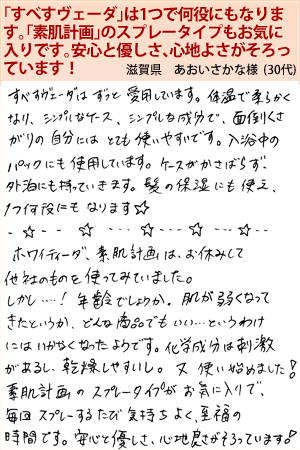 「すべすヴェーダ」は1つで何役にもなりま
す。「素肌計画」のスプレータイプもお気に
入りです。安心と優しさ、心地よさがそろっ
ています！
滋賀県　あおいさかな様（30代）
すべすヴェーダは ずっと 愛用しています。体温で柔らかく
なり、シンプルなケース、シンプルな成分で、面倒くさ
がりの自分には とても使いやすいです。入浴中の
パックにも使用しています。ケースがかさばらず、
外泊にも持っていきます。髪の保湿にも使え、
1つ何役にも なります☆
ホワイティーダ、素肌計画は、お休みして
他社のものを使ってみていました。
しかし……！年齢でしょうか。肌が弱くなって
きたというか、どんな商品でもいい…というわけ
にはいかなくなったようです。化学成分は刺激
があるし、乾燥しやすいし。又 使い始めました！
素肌計画のスプレータイプが お気に入りで、
毎回スプレーするたび 気持ちよく、至福の
時間です。安心と優しさ、心地良さがそろっています！